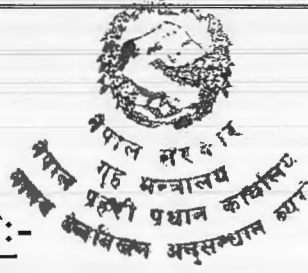 नेपाल सरकार
गृह मन्त्रालय
नेपाल प्रहरी प्रधान कार्यालय
अनुसन्धान ब्यूरो
:-